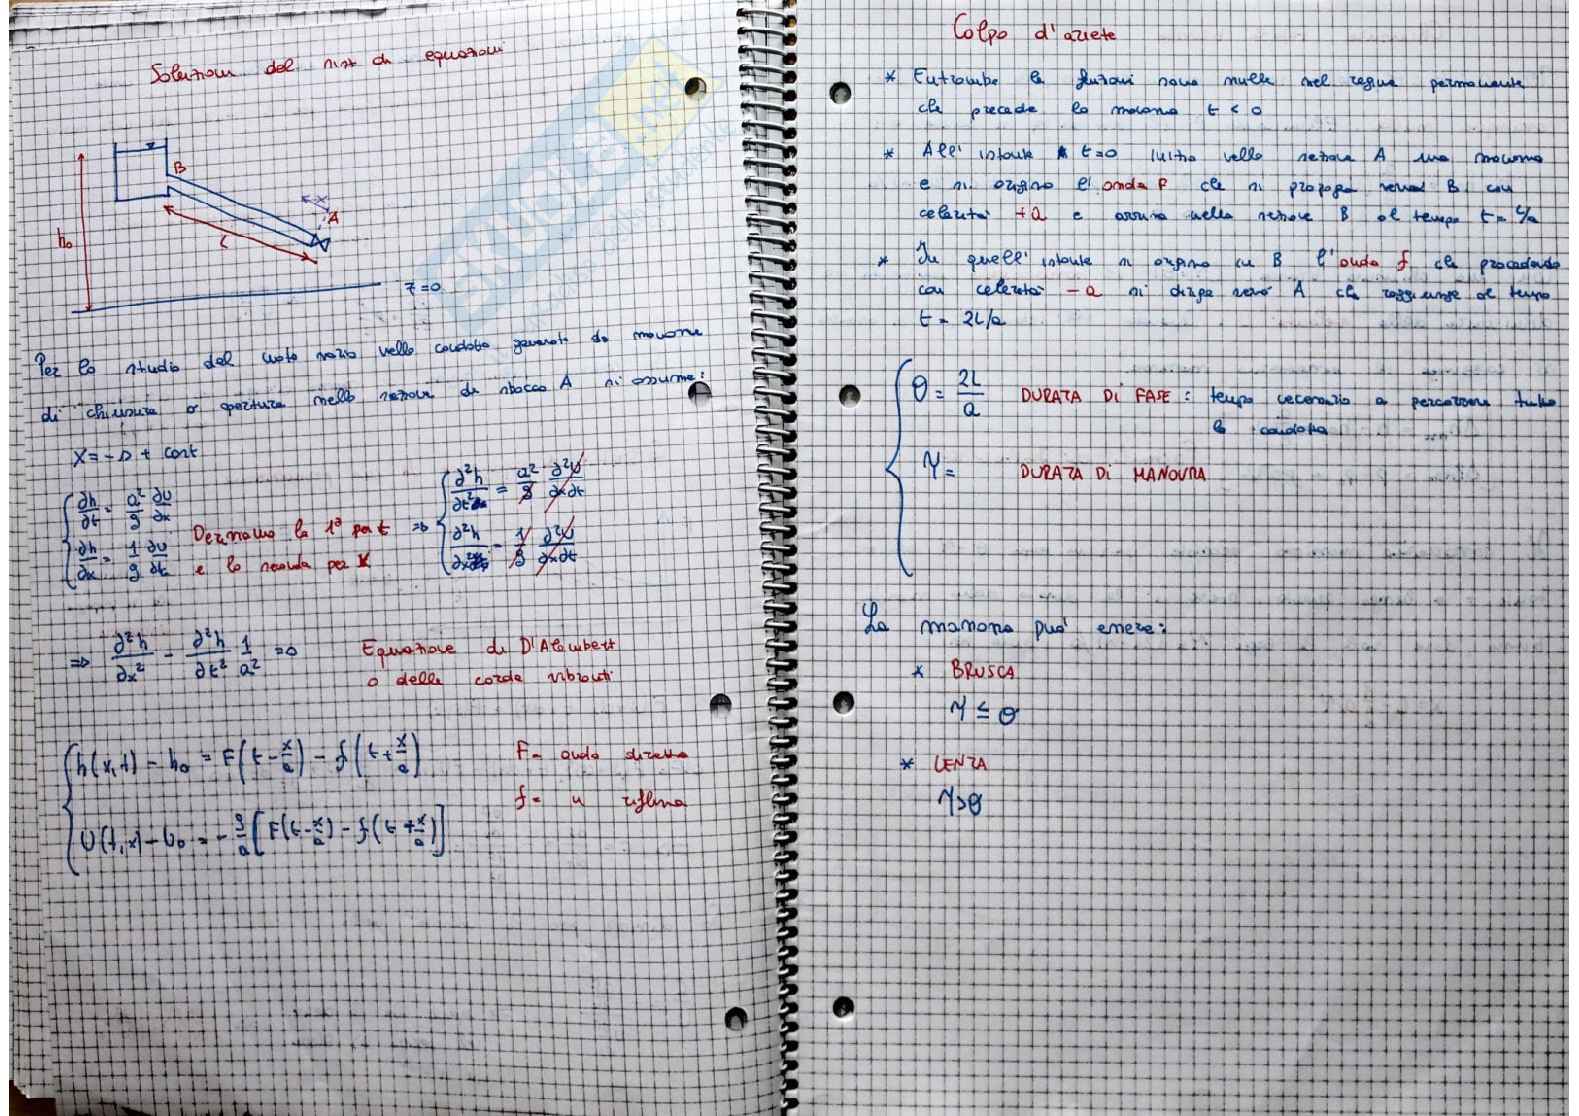 Soluzioni del sist di equazioni
B
x
A
L
h₀
z=0
Per lo studio del moto vario nella condotta generato da manovre
di chiusura o apertura nella sezione di sbocco A si assume:
X = -s + cost
{ ∂h/∂t = a²/g ∂U/∂x
∂h/∂x = 1/g ∂U/∂t
Deriviamo la 1ª per t
e la seconda per x
=> { ∂²h/∂t² = a²/g ∂²U/∂x∂t
∂²h/∂x² = 1/g ∂²U/∂x∂t
=> ∂²h/∂x² - ∂²h/∂t² 1/a² = 0
Equazione di D'Alambert
o delle corde vibranti
{ h(x,t) - h₀ = F(t-x/a) - f(t+x/a)
U(t,x) - U₀ = -g/a [F(t-x/a) - f(t+x/a)]
F = onda diretta
f = " riflessa
Colpo d'ariete
* Entrambe le funzioni sono nulle nel regime permanente
che precede la manovra t < 0
* All'istante t=0 inizia nella sezione A una manovra
e si origina l'onda F che si propaga verso B con
celerità +a e arriva nella sezione B al tempo t = L/a
* In quell'istante si origina in B l'onda f che procedendo
con celerità -a si dirige verso A che raggiunge al tempo
t = 2L/a
{ Θ = 2L/a DURATA DI FASE: tempo necessario a percorrere tutta
la condotta
γ = DURATA DI MANOVRA
La manovra può essere:
* BRUSCA
γ ≤ Θ
* LENTA
γ > Θ